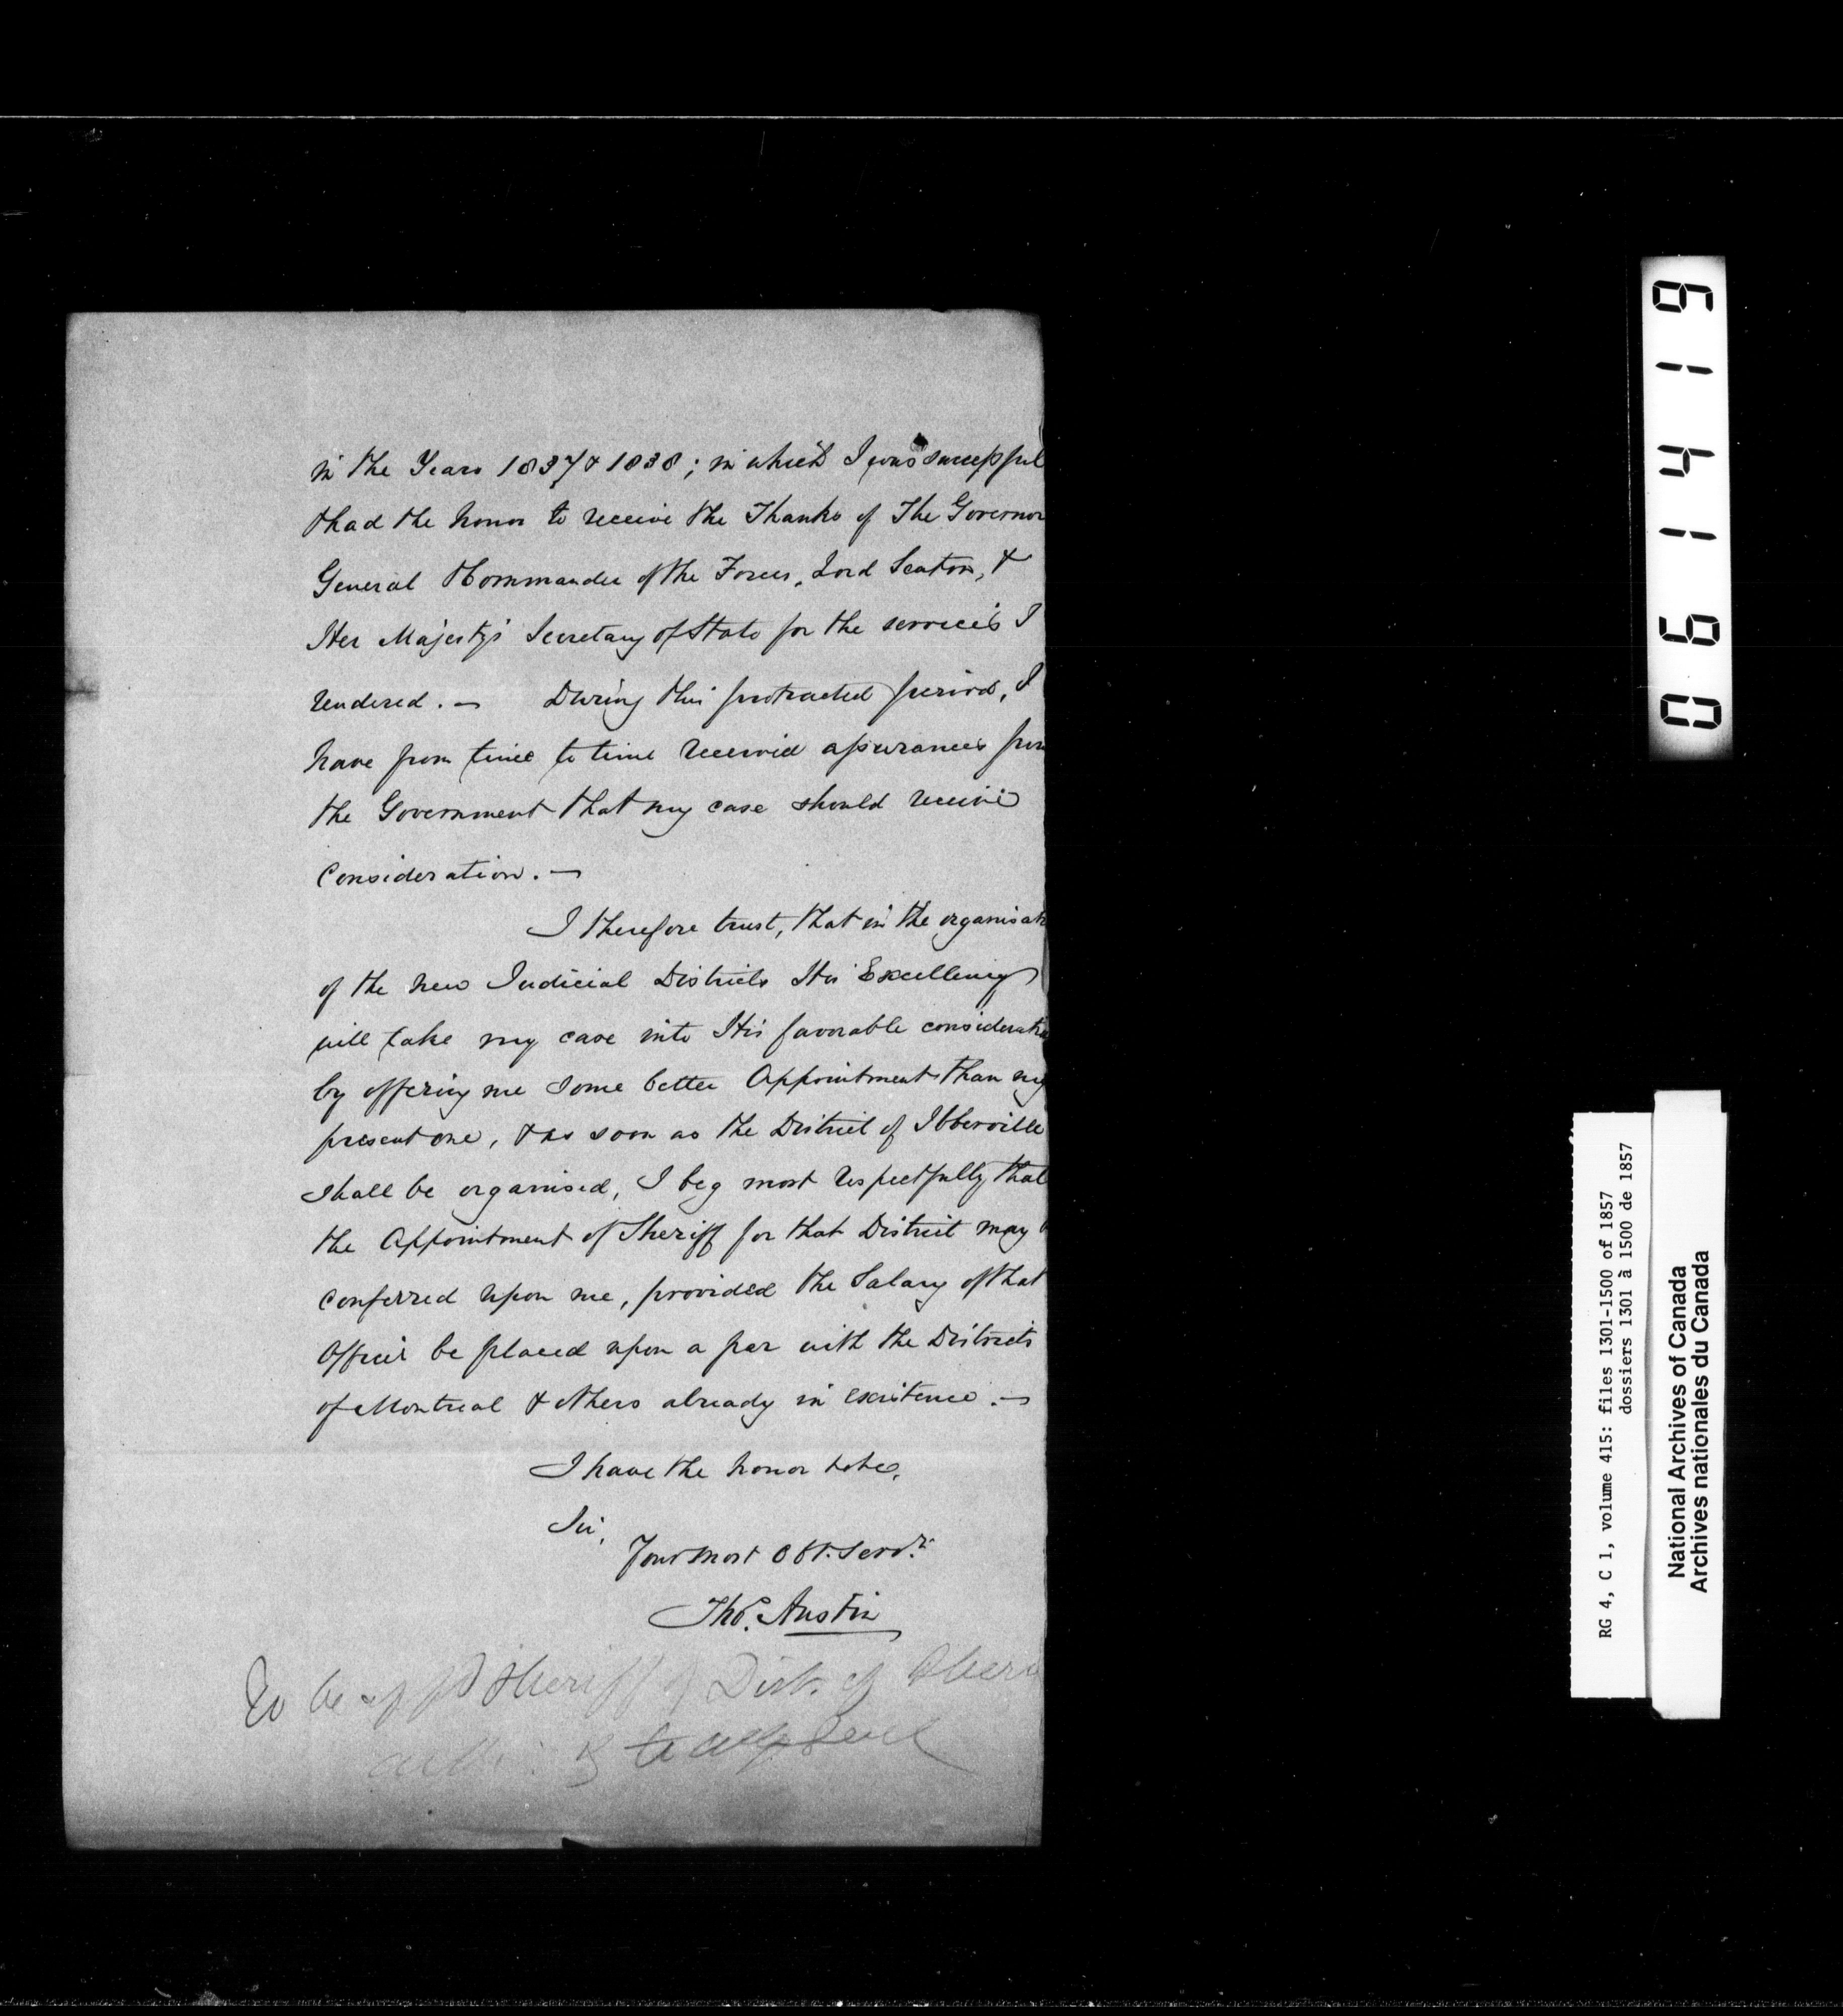 in the Years 1837 & 1838; in which I was successful
& had the honor to receive the Thanks of The Governor
General & Commander of the Forces, Lord Seaton, &
Her Majesty's Secretary of State for the services I
rendered. — During this protracted period, I
have from time to time received assurances from
the Government that my case should receive
Consideration. —
I therefore trust, that in the organisat
of the new Judicial Districts His Excellency
will take my case into His favorable consideratio
by offering me some better Appointment than my
present one, & as soon as the District of Ibberville
shall be organised, I beg most respectfully that
the Appointment of Sheriff for that District may b
conferred upon me, provided the Salary of that
Office be placed upon a par with the Districts
of Montreal & others already in existence. —
I have the honor to be,
Sir,
Your most Obt. Servt.
Thos. Austin
To be appd Sheriff of Dist. of
RG 4, C 1, volume 415: files 1301-1500 of 1857
dossiers 1301 à 1500 de 1857
National Archives of Canada
Archives nationales du Canada
061419